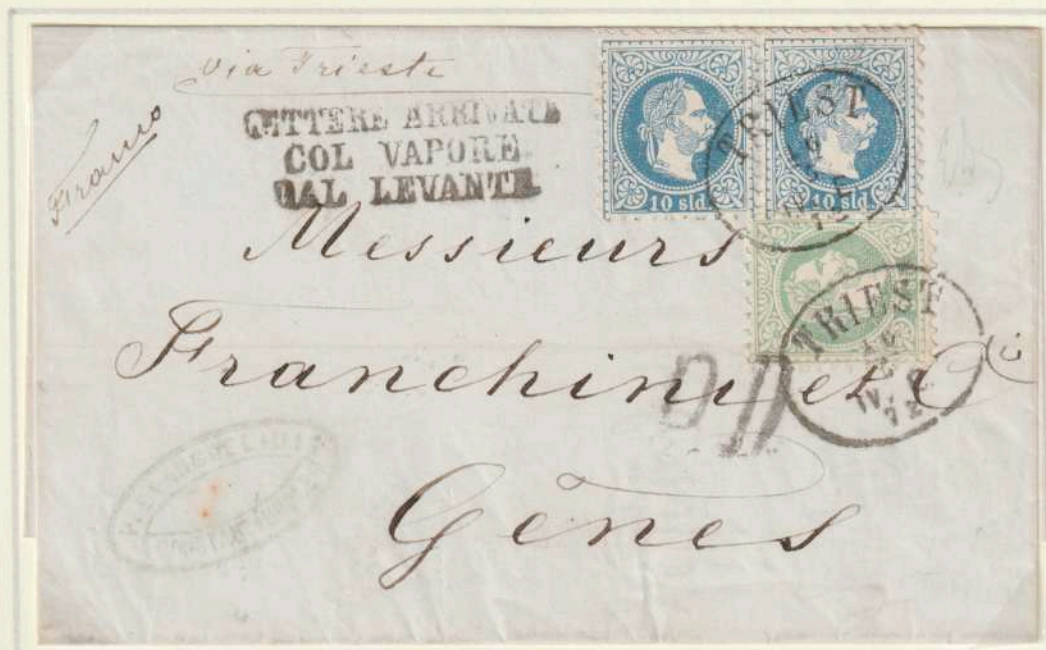 via Trieste
Franco
LETTERE ARRIVATE
COL VAPORE
DAL LEVANTE
10 sld.
10 sld.
TRIEST
IV.
72
TRIEST
IV.
72
Messieurs
Franchini et Cie
PD
Gênes